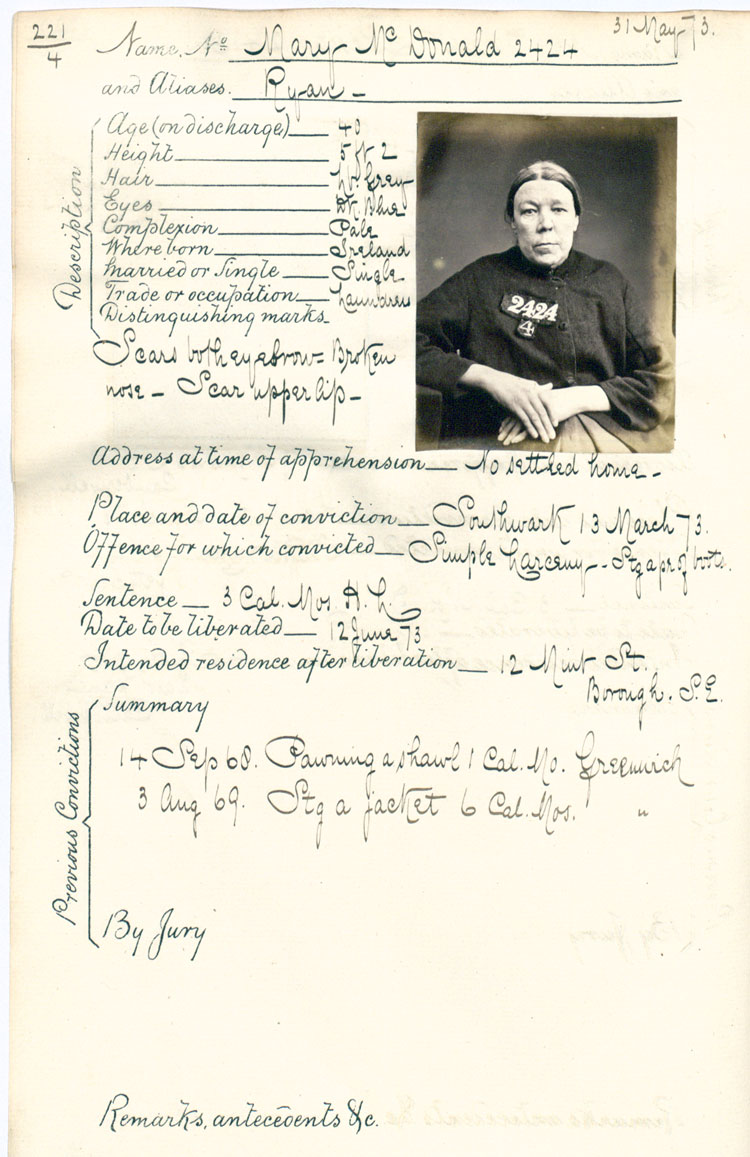 221
4
31 May 73.
Name, No Mary McDonald 2424
and Aliases. Ryan –
Description
Age (on discharge) 40
Height 5 ft 2
Hair Lt. Grey
Eyes Dk. Blue
Complexion Pale
Where born Ireland
Married or Single Single
Trade or occupation Laundress
Distinguishing marks
Scars both eyebrow = Broken
nose – Scar upper lip –
2424
4
Address at time of apprehension – No settled home –
Place and date of conviction – Southwark 13 March 73.
Offence for which convicted – Simple Larceny – Stg a pr of boots.
Sentence – 3 Cal. Mos H. L.
Date to be liberated – 12 June 73
Intended residence after liberation – 12 Mint St.
Borough. S.E.
Previous Convictions
Summary
14 Sep 68. Pawning a shawl 1 Cal. Mo. Greenwich
3 Aug 69. Stg a jacket 6 Cal. Mos. "
By Jury
Remarks, antecedents &c.